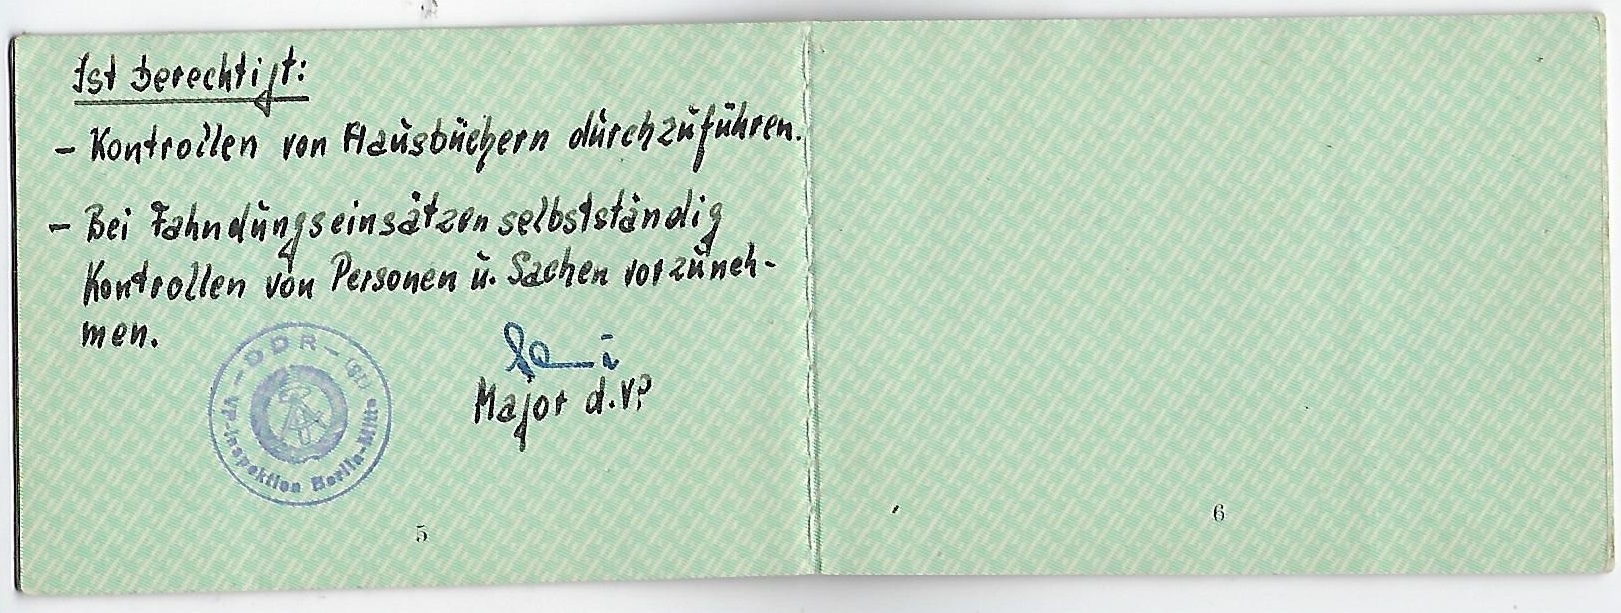 Ist berechtigt:
- Kontrollen von Hausbüchern durchzuführen.
- Bei Fahndungseinsätzen selbstständig
Kontrollen von Personen u. Sachen vorzuneh-
men.
Major d. VP
- DDR -
VP-Inspektion Berlin-Mitte
5
6